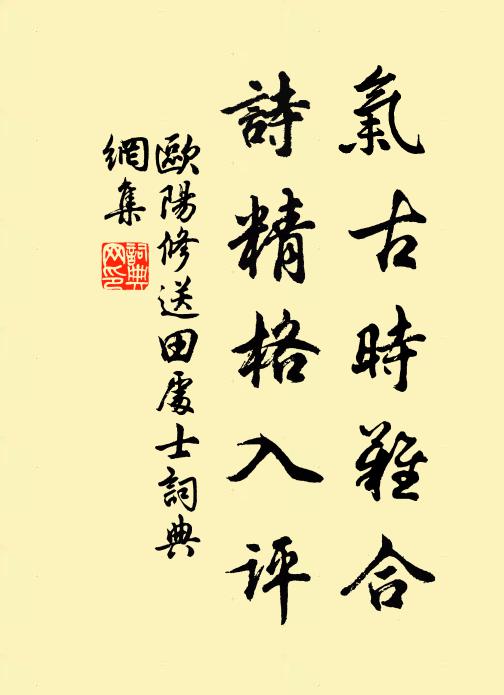 氣古時難合
詩精格入評
歐陽修送田處士詞典
網集
詞典網印